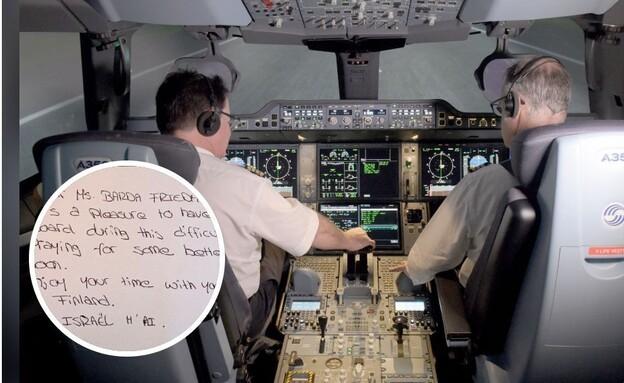 Ms. BARDA FRIEDM
s a pleasure to have
oard during this difficu
raying for some bette
oon.
njoy your time with yo
Finland.
ISRAËL H'AI.
A35
A35